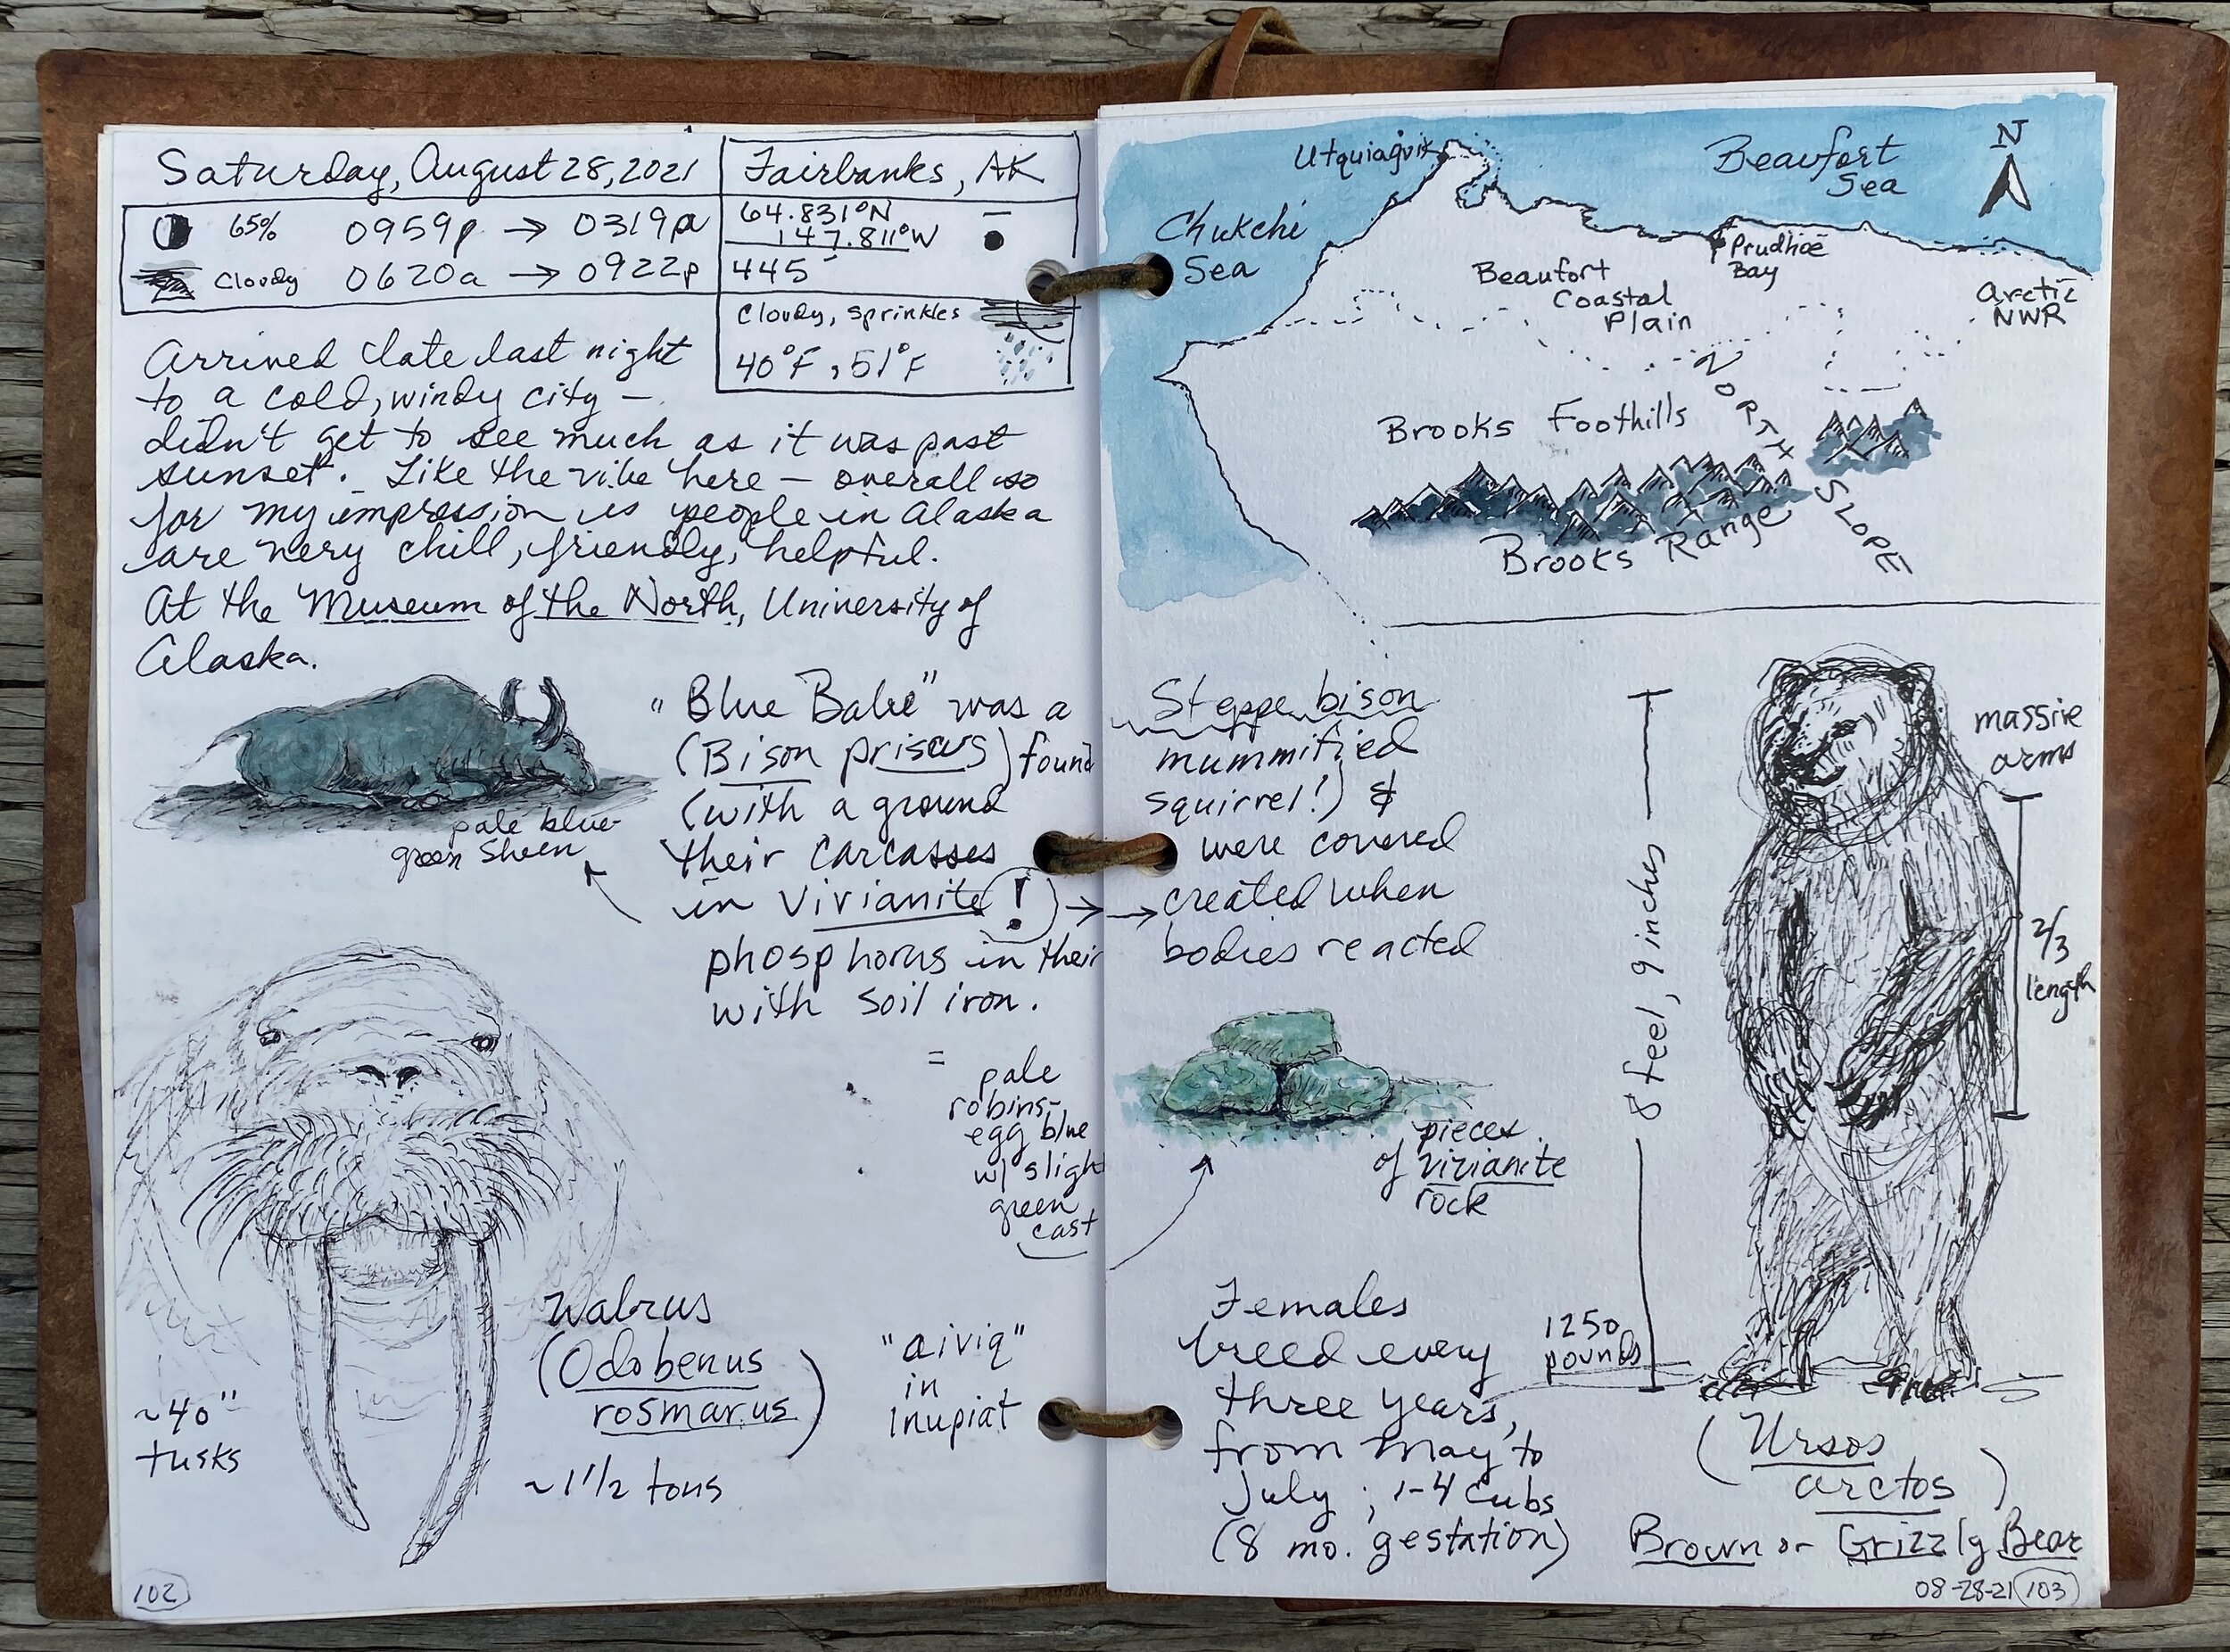 Saturday, August 28, 2021
Fairbanks, AK
65% 0959p → 0319p
Cloudy 0620a → 0922p
64.831°N
147.811°W
445'
Cloudy, sprinkles
40°F, 51°F
Arrived late last night
to a cold, windy city –
didn't get to see much as it was past
sunset. Like the vibe here – overall so
far my impression is people in Alaska
are very chill, friendly, helpful.
At the Museum of the North, University of
Alaska.
pale blue-
green sheen
"Blue Babe" was a Steppe bison
(Bison priscus) found mummified
(with a ground squirrel!) &
their carcasses were covered
in vivianite! → → created when
phosphorus in their bodies reacted
with soil iron.
= pale
robins-
egg blue
w/ slight
green
cast
pieces
of vivianite
rock
Walrus
(Odobenus
rosmarus)
~1 1/2 tons
~40"
tusks
"aiviq"
in
Inupiat
102
Utquiaġvik
Beaufort
Sea
N
Chukchi
Sea
Prudhoe
Bay
Beaufort
Coastal
Plain
Arctic
NWR
Brooks Foothills
NORTH SLOPE
Brooks Range
massive
arms
8 feel, 9 inches
2/3
length
1250
pounds
Females
breed every
three years,
from May to
July; 1-4 cubs
(8 mo. gestation)
(Ursos
arctos)
Brown or Grizzly Bear
08-28-21 103